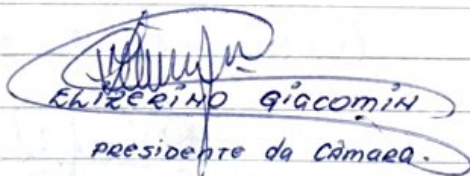 ELIZERINO GIACOMIN
PRESIDENTE da CÂMARA.